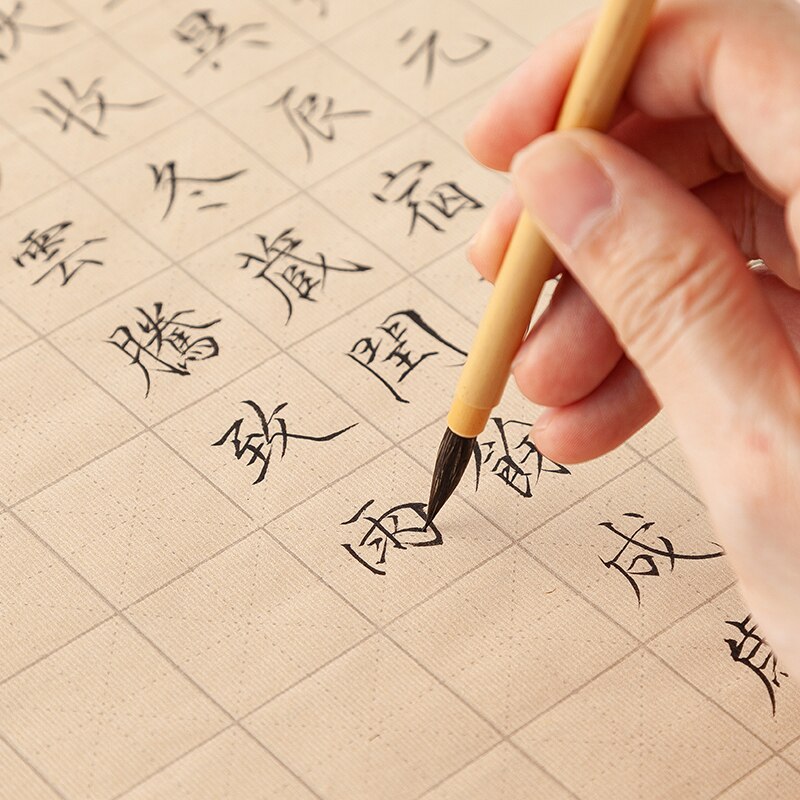 元
昃辰宿
收冬藏閏餘成歲
雲騰致雨